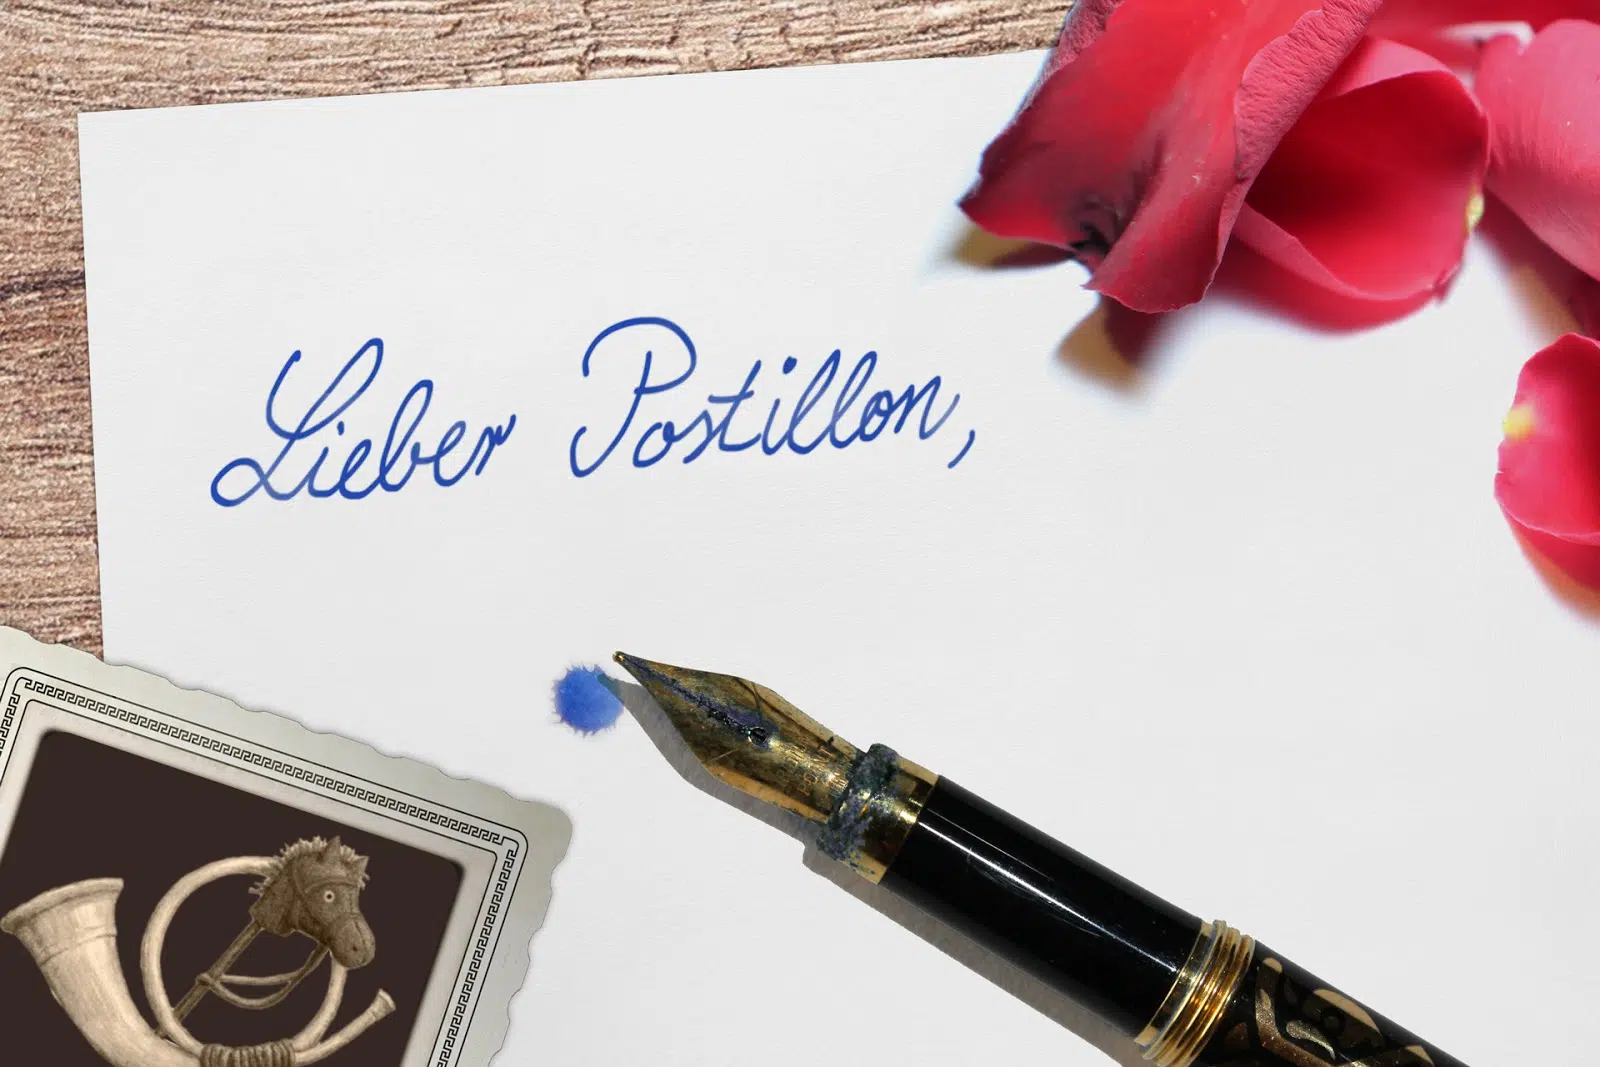 Lieber Postillon,